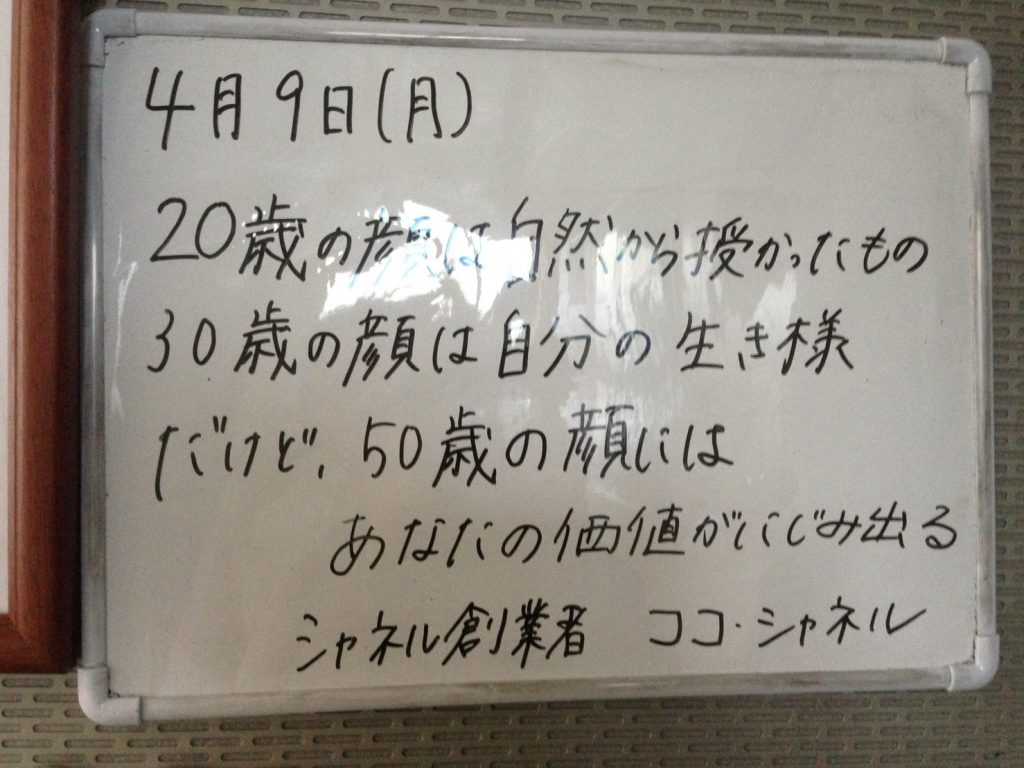 4月9日(月)
20歳の顔は自然から授かったもの
30歳の顔は自分の生き様
だけど、50歳の顔には
あなたの価値がにじみ出る
シャネル創業者 ココ・シャネル